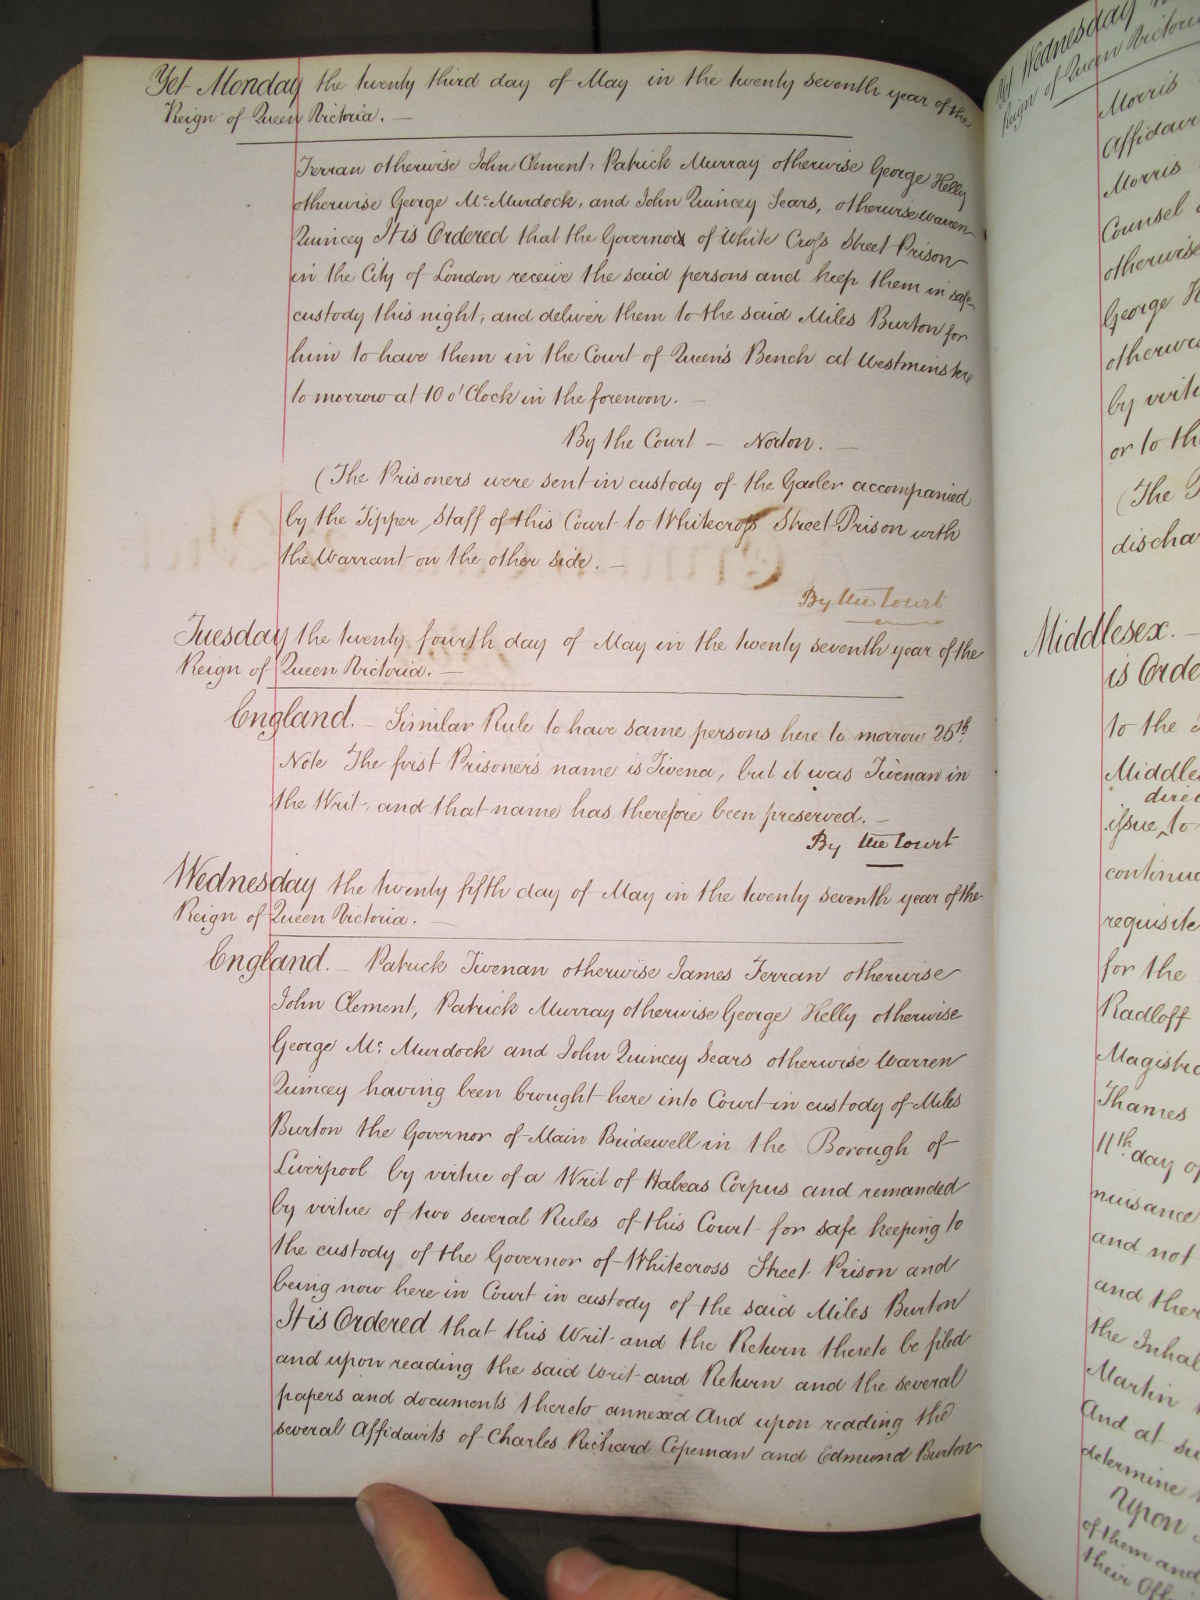 Yet Monday the twenty third day of May in the twenty seventh year of the
Reign of Queen Victoria. —
Ferran otherwise John Clement, Patrick Murray otherwise George Kelly
otherwise George Mc. Murdock, and John Quincey Sears, otherwise Warren
Quincey It is Ordered that the Governor of White Cross Street Prison
in the City of London receive the said persons and keep them in safe
custody this night, and deliver them to the said Miles Burton for
him to have them in the Court of Queen's Bench at Westminster
to morrow at 10 o'Clock in the forenoon. —
By the Court — Norton. —
(The Prisoners were sent in custody of the Gaoler accompanied
by the Tipper Staff of this Court to Whitecross Street Prison with
the Warrant on the other side. —
By the Court
Tuesday the twenty fourth day of May in the twenty seventh year of the
Reign of Queen Victoria. —
England. — Similar Rule to have same persons here to morrow 25th.
Note The first Prisoner's name is Tivena, but it was Tivenan in
the Writ, and that name has therefore been preserved. —
By the Court
Wednesday the twenty fifth day of May in the twenty seventh year of the
Reign of Queen Victoria. —
England. — Patrick Tivenan otherwise James Ferran otherwise
John Clement, Patrick Murray otherwise George Kelly otherwise
George Mc. Murdock and John Quincey Sears otherwise Warren
Quincey having been brought here into Court in custody of Miles
Burton the Governor of Main Bridewell in the Borough of
Liverpool by virtue of a Writ of Habeas Corpus and remanded
by virtue of two several Rules of this Court for safe keeping to
the custody of the Governor of Whitecross Street Prison and
being now here in Court in custody of the said Miles Burton
It is Ordered that this Writ and the Return thereto be filed
and upon reading the said Writ and Return and the several
papers and documents thereto annexed And upon reading the
several Affidavits of Charles Richard Copeman and Edmund Burton
Yet Wednesday
Reign of Queen Victoria
Morris
Affidav
Morris
Counsel
otherwise
George K
otherwi
by virtu
or to th
(The P
discha
Middlesex. —
is Orde
to the
Middle
direc
issue, to
continu
requisite
for the
Radloff
Magistra
Thames
11th. day of
nuisance
and not
and ther
the Inhab
Martin
And at su
determine
Upon
of them and
their Off